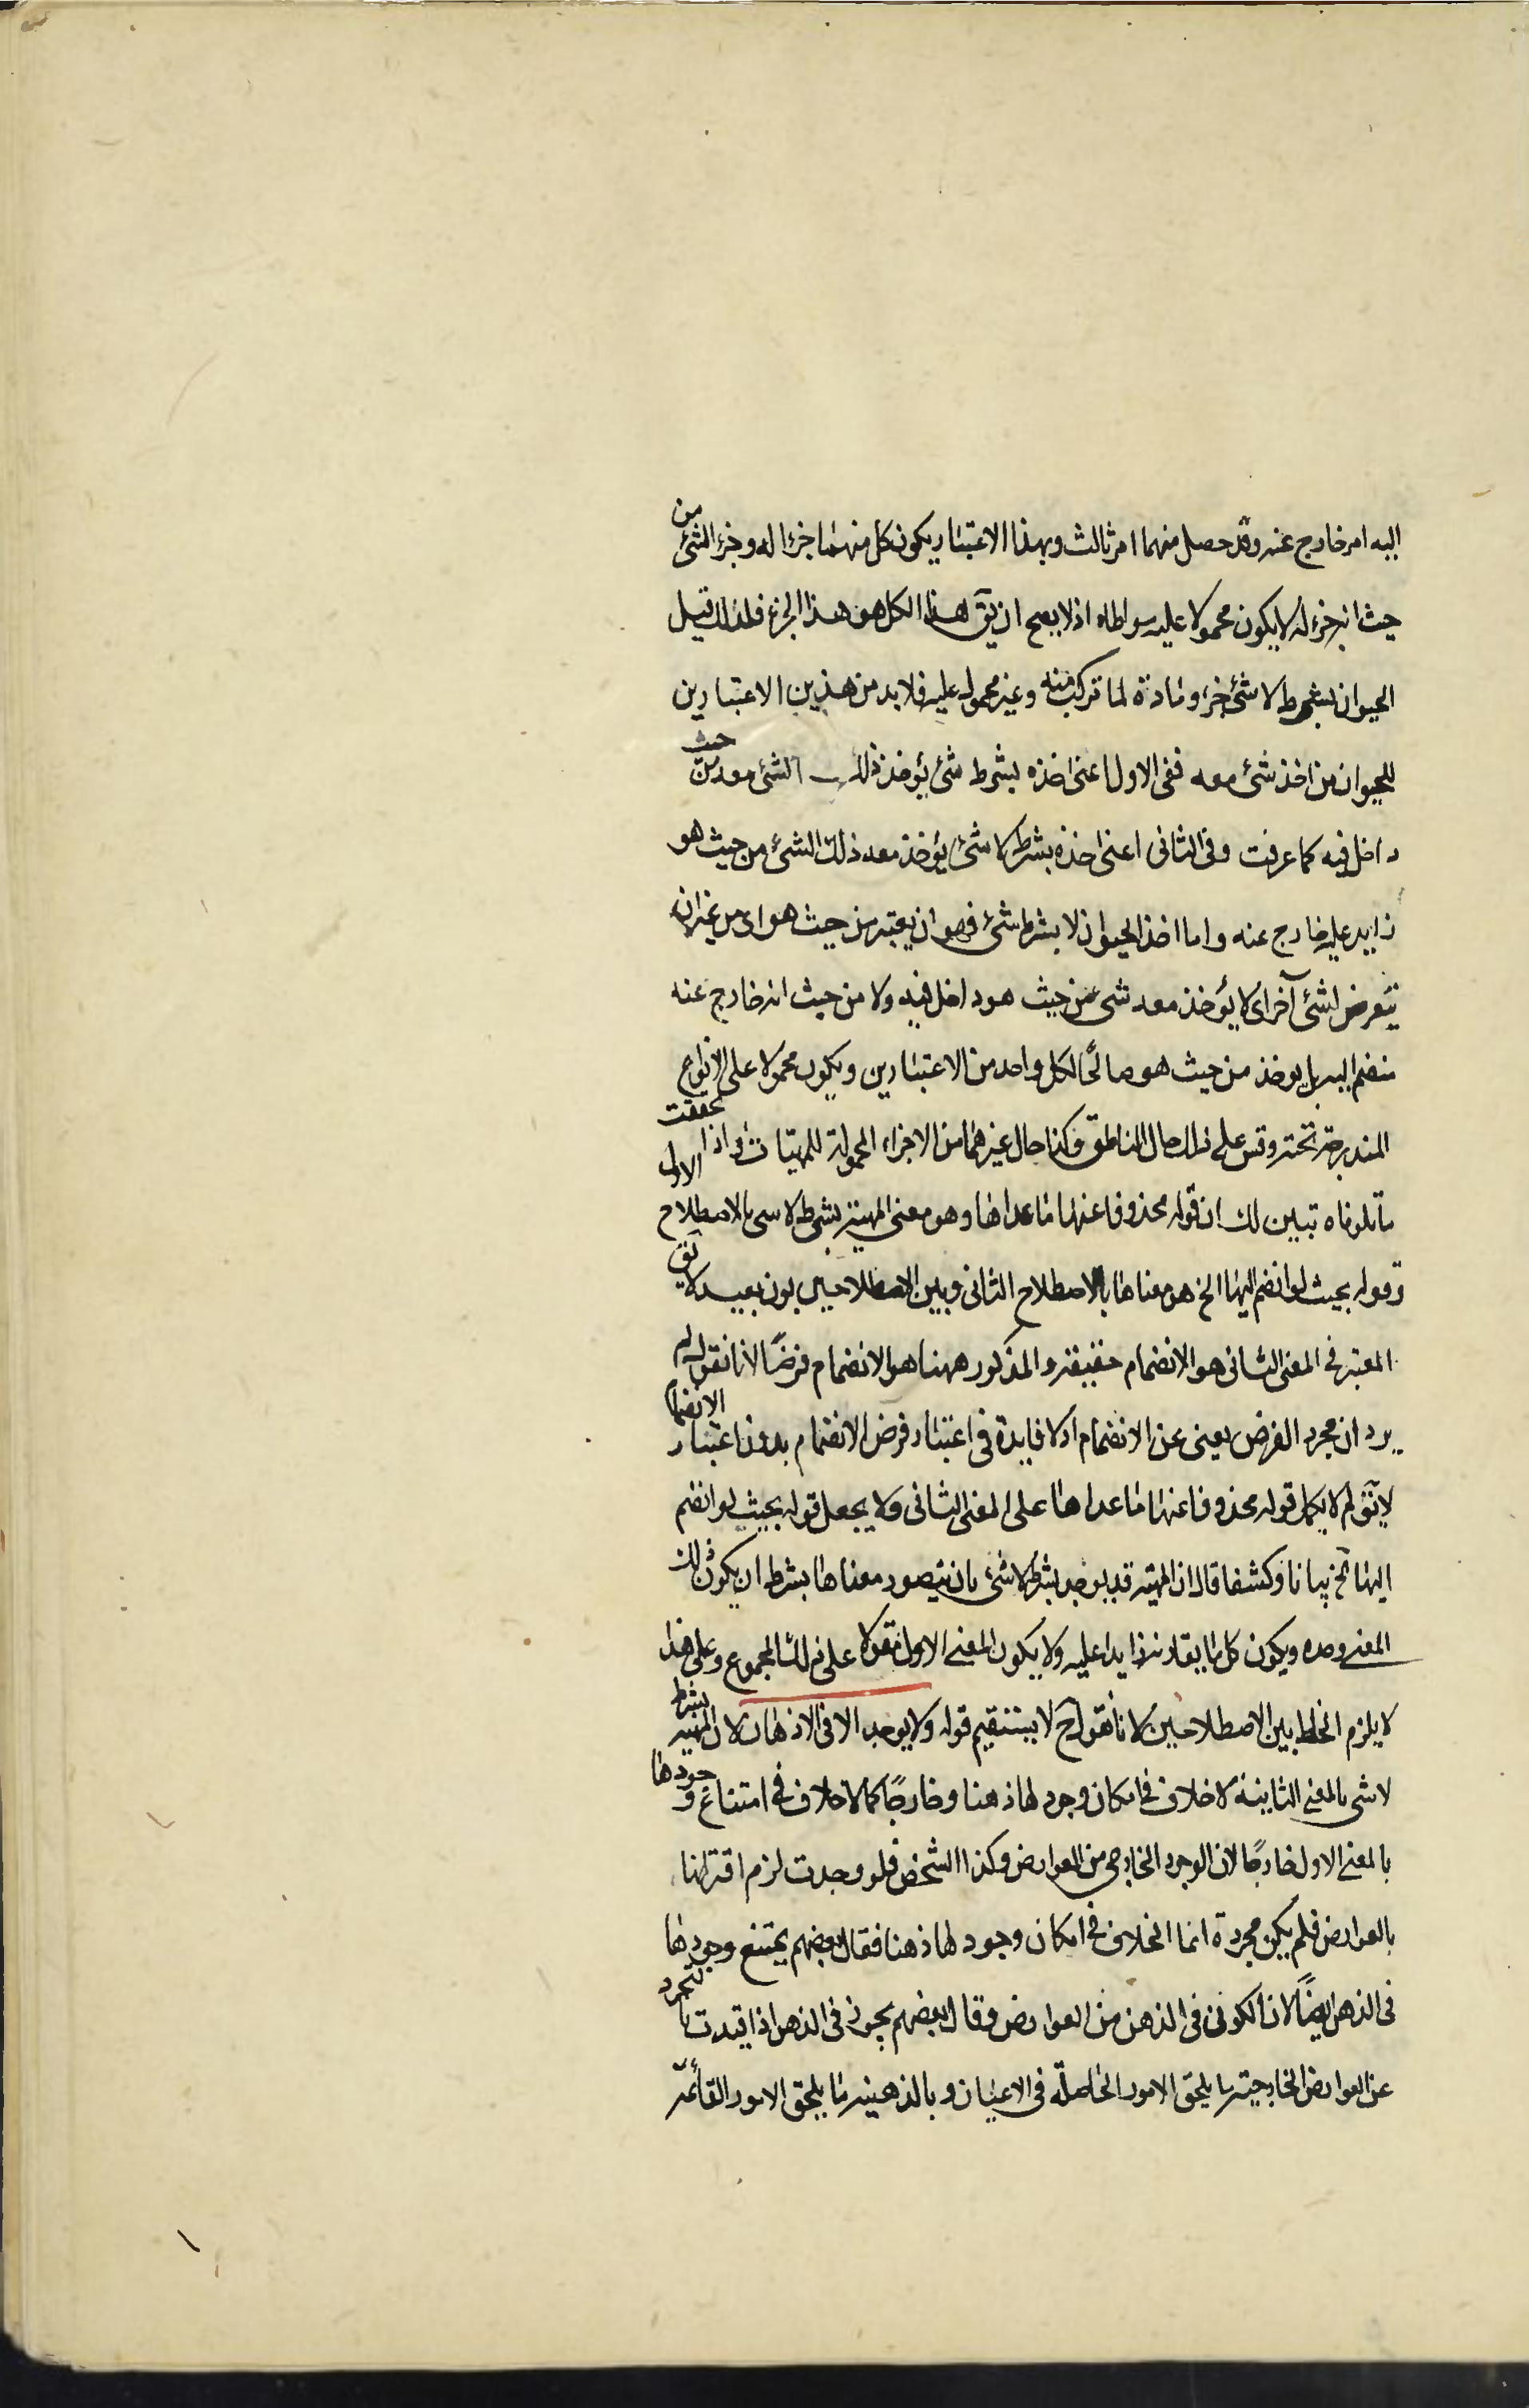 اليه امر خارج عنه وقد حصل منهما امر ثالث وبهذا الاعتبار يكون كل منهما جزءا له وجزء الشئ من
حيث انه جزء له لا يكون محمولا عليه مواطاه اذ لا يصح ان يق هذا الكل هو هذا الجزء فلذلك قيل
الحيوان بشرط لا شئ جزء ومادة لما تركب منه وغير محمول عليه فلا بد من هذين الاعتبارين
للحيوان من اخذ شئ معه ففى الاول اعنى اخذه بشرط شئ يؤخذ ذلك الشئ معه من حيث
داخل فيه كما عرفت وفى الثانى اعنى اخذه بشرط لا شئ يؤخذ معه ذلك الشئ من حيث هو
زايد عليه خارج عنه واما اخذ الحيوان لا بشرط شئ فهو ان يعتبر من حيث هو اى من غير ان
يتعرض لشئ آخر اى لا يؤخذ معه شئ من حيث هو داخل فيه ولا من حيث انه خارج عنه
منضم اليه بل يوخذ من حيث هو صالحًا لكل واحد من الاعتبارين ويكون محمولا على الانواع
المندرجة تحته وقس على ذلك حال الناطق وكذا حال غيرهما من الاجزاء المحمولة للمهيات واذا تحققت
ما تلوناه تبين لك ان قوله محذوفا عنها ما عداها وهو معنى المهية بشرط لا شئ بالاصطلاح الاول
وقوله بحيث لو انضم اليها الخ هو معناها بالاصطلاح الثانى وبين الاصطلاحين بون بعيد لا يق
المعتبر فى المعنى الثانى هو الانضمام حقيقة والمذكور ههنا هو الانضمام فرضًا لانا نقول لم
يرد ان مجرد الفرض يعنى عن الانضمام اذ لا فايدة فى اعتبار فرض الانضمام بدون اعتبار الانضمام
لا يق لم لا يحمل قوله محذوفا عنها ما عداها على المعنى الثانى ولا يجعل قوله بحيث لو انضم
اليها الخ بيانا وكشفا قال ان المهية قد يوخذ بشرط لا شئ بان يتصور معناها بشرط ان يكون ذلك
المعنى وحده ويكون كل ما يقارنه زايدا عليه ولا يكون المعنى الاول مقولا على ذلك المجموع وعلى هذا
لا يلزم الخلط بين الاصطلاحين لانا نقول ح لا يستقيم قوله ولا يوجد الا فى الاذهان لان المهية بشرط
لا شئ بالمعنى الثانية لا خلاف فى امكان وجود لها ذهنا وخارجًا كما لا خلاف فى امتناع وجودها
بالمعنى الاول خارجًا لان الوجود الخارجى من العوارض وكذا الشخص فلو وجدت لزم اقترانها
بالعوارض فلم يكن مجردة انما الخلاف فى امكان وجود لها ذهنا فقال بعضهم يمتنع وجودها
فى الذهن ايضًا لان الكون فى الذهن من العوارض وقال بعضهم يجوز فى الذهن اذا قيدت بالتجرد
عن العوارض الخارجية ما يلحق الامور الحاصلة فى الاعيان وبالذهنية ما يلحق الامور القائمة